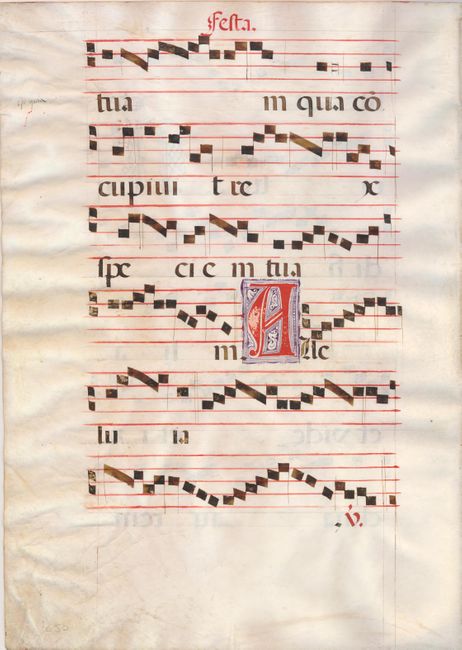 Festa.
tua in qua cō
cupiuit rex
speciem tua
m. Alle
lu ia
℣.